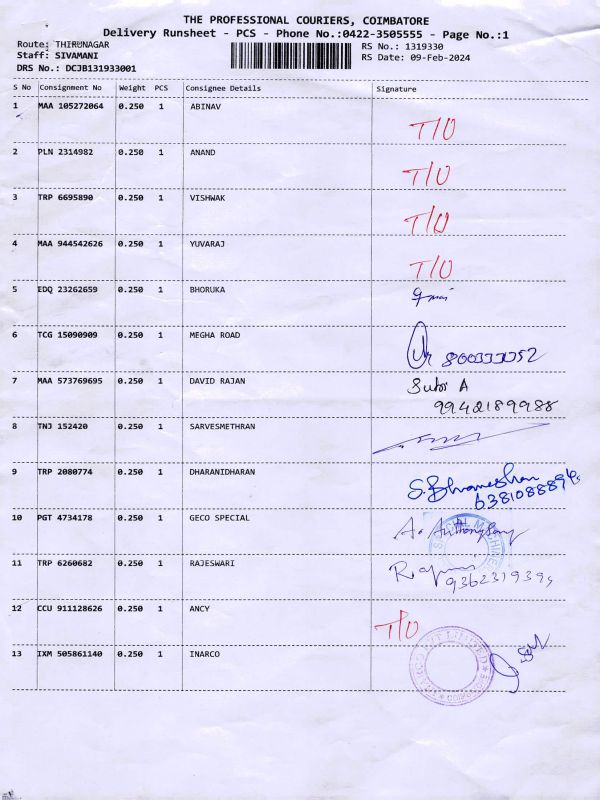 THE PROFESSIONAL COURIERS, COIMBATORE
Delivery Runsheet - PCS - Phone No.:0422-3505555 - Page No.:1
Route: THIRUNAGAR RS No.: 1319330
Staff: SIVAMANI RS Date: 09-Feb-2024
DRS No.: DCJB131933001
S No Consignment No Weight PCS Consignee Details Signature
1 MAA 105272064 0.250 1 ABINAV T/O
2 PLN 2314982 0.250 1 ANAND T/O
3 TRP 6695890 0.250 1 VISHWAK T/O
4 MAA 944542626 0.250 1 YUVARAJ T/O
5 EDQ 23262659 0.250 1 BHORUKA
6 TCG 15090909 0.250 1 MEGHA ROAD
7 MAA 573769695 0.250 1 DAVID RAJAN
9942189988
8 TNJ 152420 0.250 1 SARVESMETHRAN
9 TRP 2080774 0.250 1 DHARANIDHARAN
10 PGT 4734178 0.250 1 GECO SPECIAL
11 TRP 6260682 0.250 1 RAJESWARI
12 CCU 911128626 0.250 1 ANCY T/O
13 IXM 505861140 0.250 1 INARCO